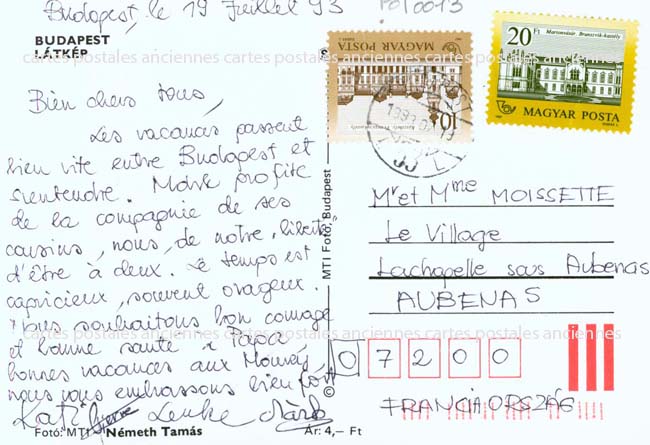 Budapest, le 19 Juillet 93
P010013
BUDAPEST
LÁTKÉP
cartes postales anciennes cartes postales anciennes cartes postales anciennes
Bien chers tous,
Les vacances passent
bien vite entre Budapest et
Szentendre. profite
de la compagnie de ses
cousins, nous, de notre "liberté"
d'être à deux. Le temps est
capricieux, souvent orageux.
Nous souhaitons bon courage
et bonne santé à Papa
bonnes vacances aux
nous vous embrassons bien fort
Kati Lenke
Fotó: MTI Németh Tamás
Ár: 4,– Ft
© MTI Fotó, Budapest
MAGYAR POSTA
10 Ft
20 Ft
Martonvásár, Brunszvik-kastély
MAGYAR POSTA
Mr et Mme MOISSETTE
Le Village
Lachapelle sous Aubenas
AUBENAS
cartes postales anciennes cartes postales anciennes cartes postales anciennes
07200
FRANCIAORSZÁG